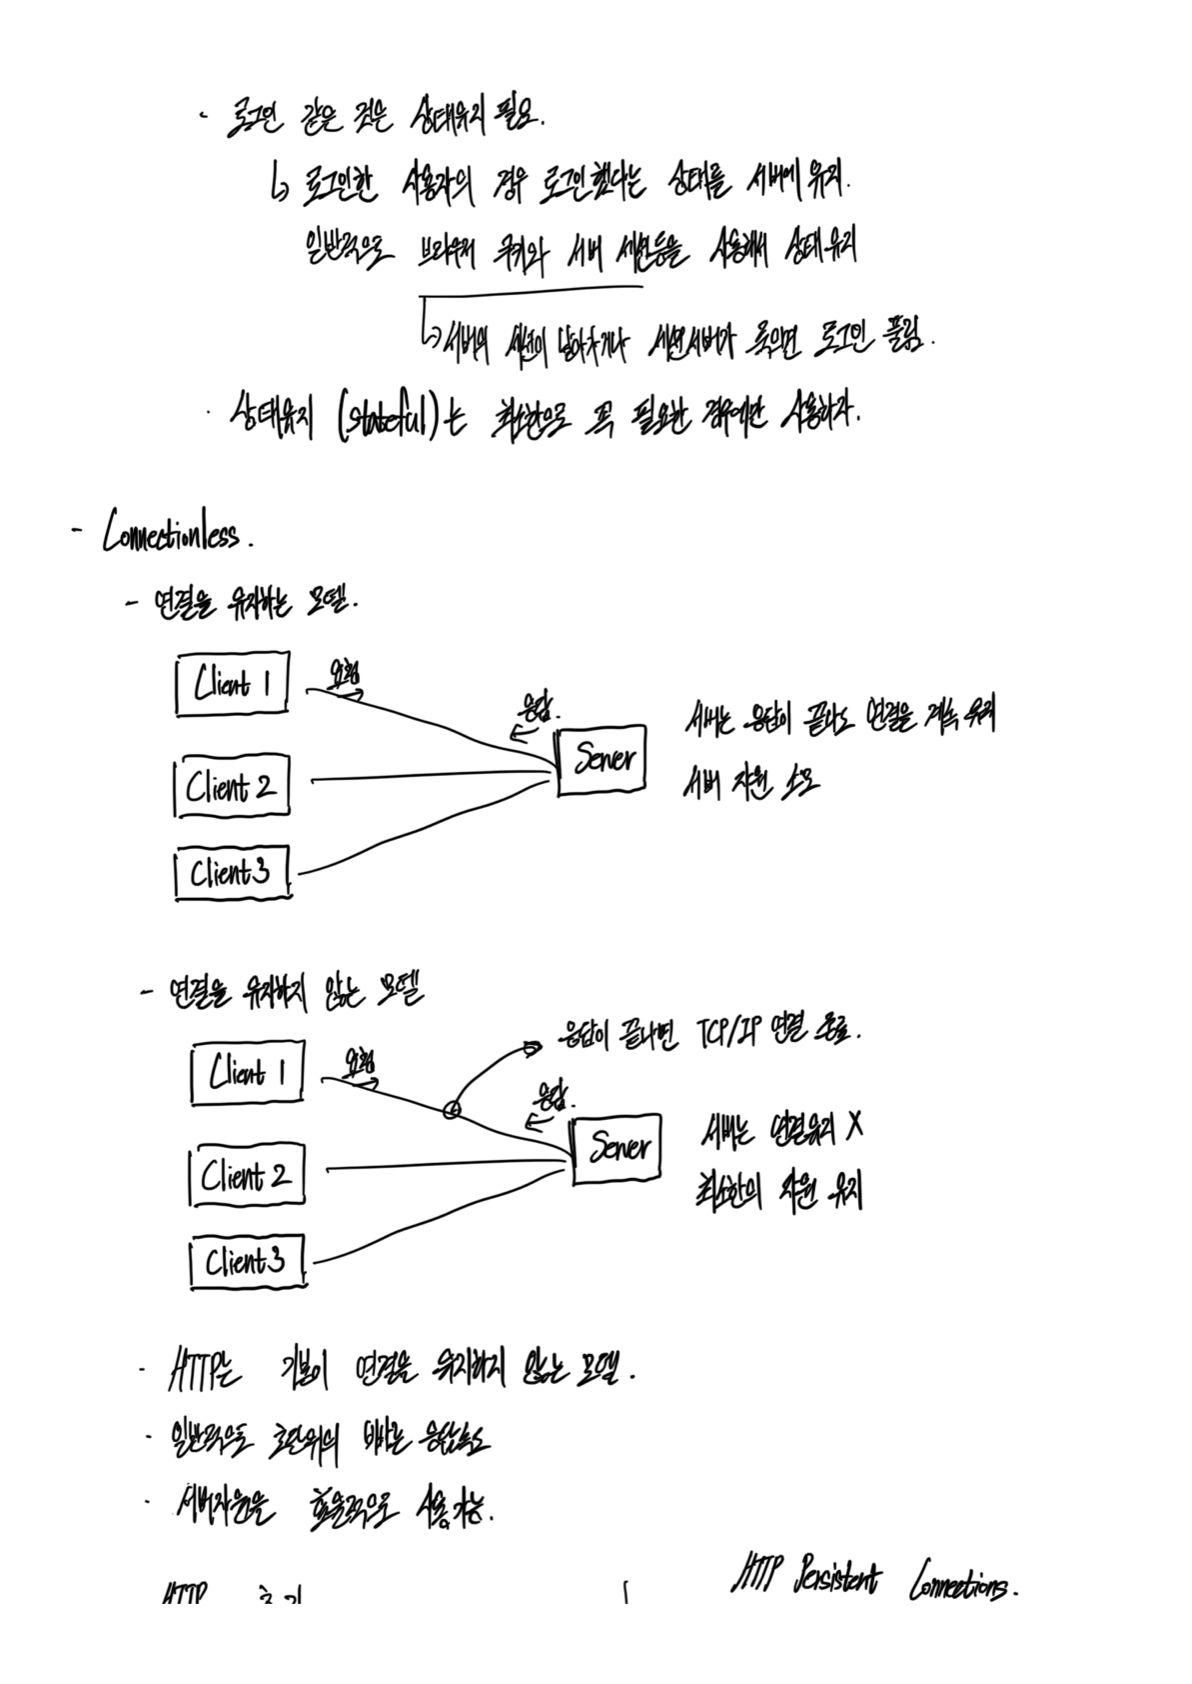 · 로그인 같은 것은 상태유지 필요.
↳ 로그인한 사용자의 경우 로그인 했다는 상태를 서버에 유지.
일반적으로 브라우저 쿠키와 서버 세션등을 사용해서 상태유지
↳ 서버의 세션이 날아가거나 세션서버가 죽으면 로그인 풀림.
· 상태유지 (stateful)는 최소한으로 꼭 필요한 경우에만 사용하자.
- Connectionless.
- 연결을 유지하는 모델.
Client 1
요청
응답.
Server
서버는 응답이 끝나도 연결을 계속 유지
Client 2
서버 자원 소모
Client 3
- 연결을 유지하지 않는 모델
응답이 끝나면 TCP/IP 연결 종료.
Client 1
요청
응답.
Server
서버는 연결유지 X
Client 2
최소한의 자원 유지
Client 3
· HTTP는 기본이 연결을 유지하지 않는 모델.
· 일반적으로 초단위의 빠른 응답속도
· 서버자원을 효율적으로 사용가능.
HTTP Persistent Connections.
HTTP 초기